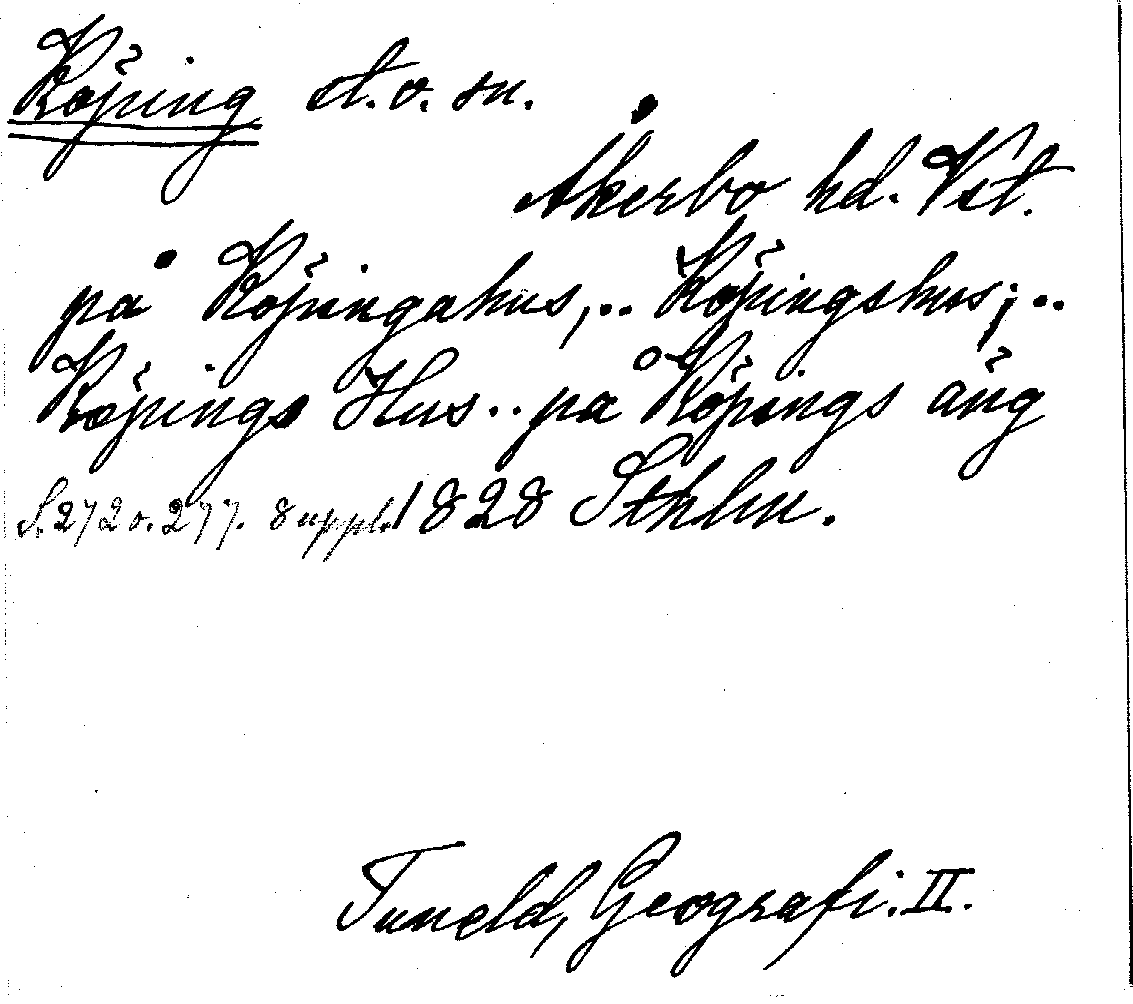 Köping st. o. sn.
Åkerbo hd. Vst.
på Köpingahus,.. Köpingshus;..
Köpings Hus.. på Köpings äng
S. 272 o. 277. Suppl. 1828 Sthlm.
Tuneld, Geografi. II.